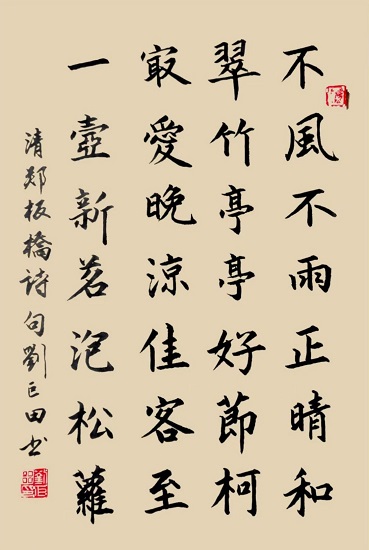 不風不雨正晴和
翠竹亭亭好節柯
㝡愛晚涼佳客至
一壺新茗泡松蘿
清鄭板橋詩句劉巨田书